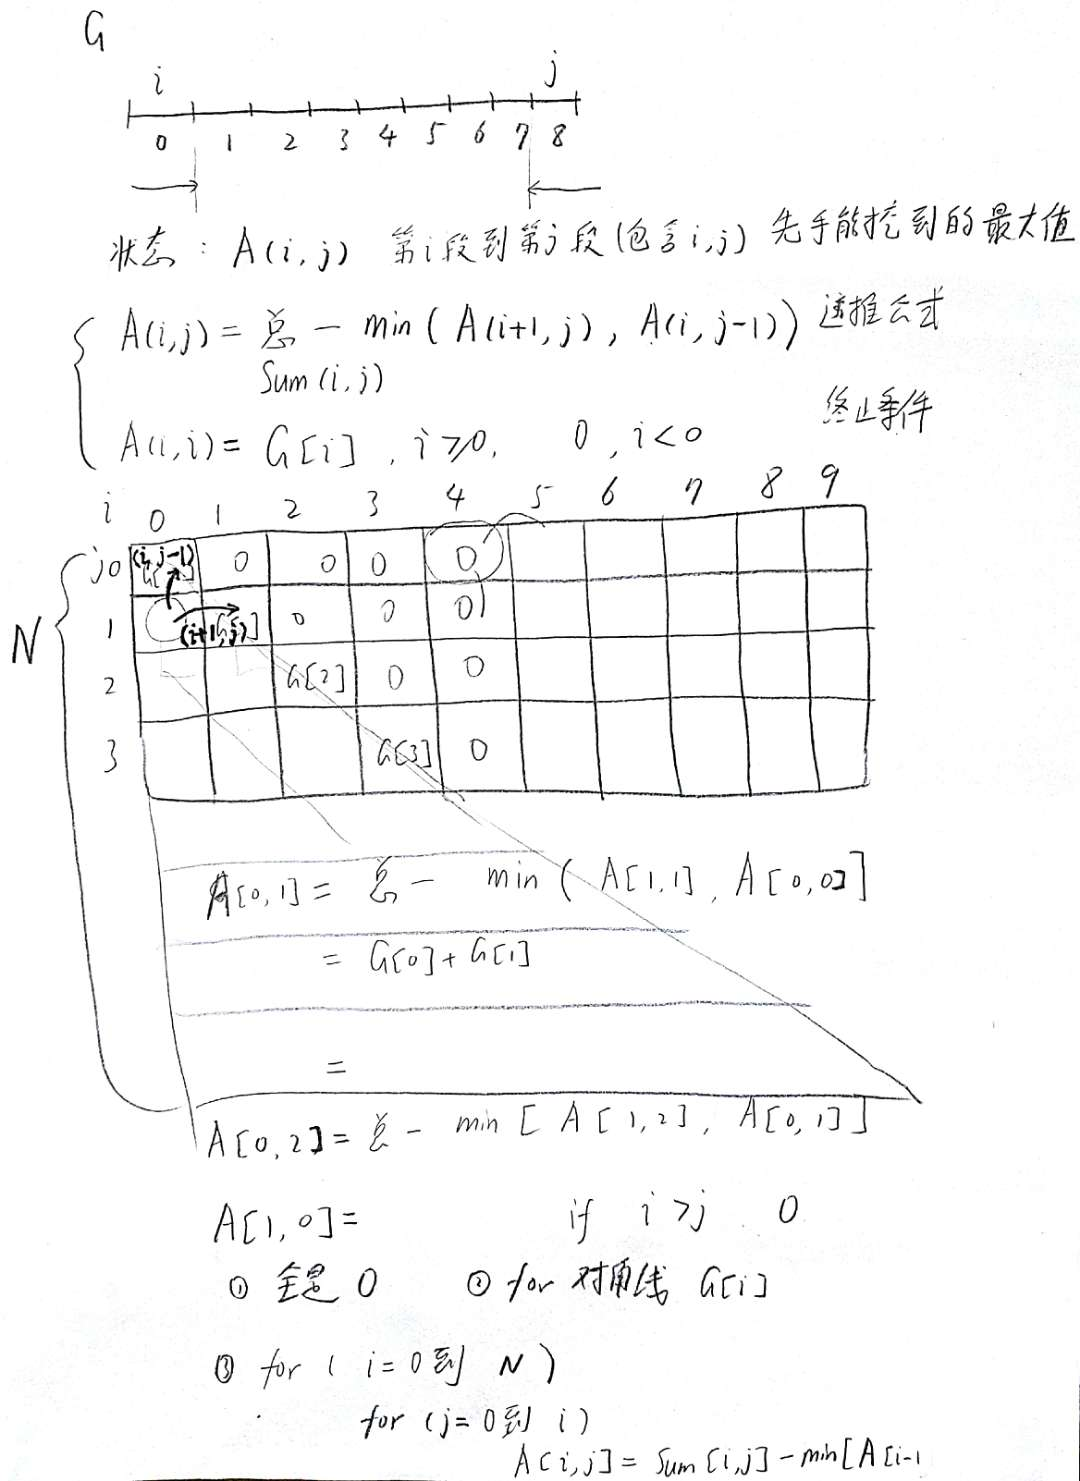 G
i j
0 1 2 3 4 5 6 7 8
状态: A(i,j) 第i段到第j段(包含i,j) 先手能挖到的最大值
A(i,j) = 总 - min ( A(i+1,j) , A(i,j-1)) 递推公式
Sum(i,j)
终止条件
A(i,i) = G[i] , i≥0, 0 , i<0
i 0 1 2 3 4 5 6 7 8 9
j0 (i,j-1) 0 0 0 0
N
1 (i+1,j) ] 0 0 0
2 G[2] 0 0
3 G[3] 0
A[0,1] = 总 - min ( A[1,1] , A[0,0]]
= G[0]+G[1]
=
A[0,2] = 总 - min [ A[1,2] , A[0,1]]
A[1,0] = if i>j 0
① 全是 0 ② for 对角线 G[i]
③ for ( i=0到 N )
for (j=0到 i)
A[i,j] = Sum[i,j] - min[A[i-1